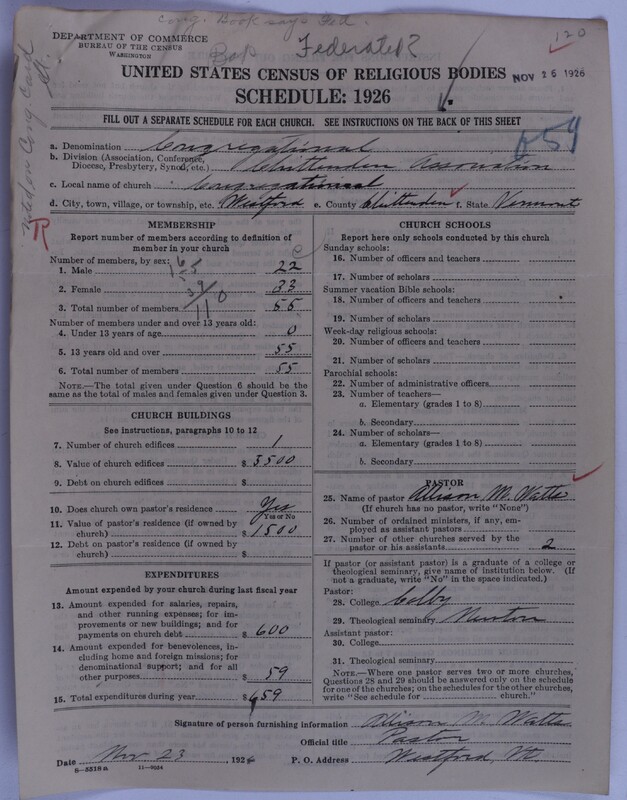 Cong. Book says Fed.
120
DEPARTMENT OF COMMERCE
BUREAU OF THE CENSUS
WASHINGTON
Bap Federated?
UNITED STATES CENSUS OF RELIGIOUS BODIES
NOV 26 1926
SCHEDULE: 1926
FILL OUT A SEPARATE SCHEDULE FOR EACH CHURCH. SEE INSTRUCTIONS ON THE BACK OF THIS SHEET
659
a. Denomination Congregational
b. Division (Association, Conference, Diocese, Presbytery, Synod, etc.) Chittenden Association
c. Local name of church Congregational
d. City, town, village, or township, etc. Westford e. County Chittenden f. State Vermont
R
MEMBERSHIP
Report number of members according to definition of member in your church
Number of members, by sex:
1. Male 22
2. Female 33
3. Total number of members 55
Number of members under and over 13 years old:
4. Under 13 years of age 0
5. 13 years old and over 55
6. Total number of members 55
NOTE.—The total given under Question 6 should be the same as the total of males and females given under Question 3.
CHURCH BUILDINGS
See instructions, paragraphs 10 to 12
7. Number of church edifices 1
8. Value of church edifices $3500
9. Debt on church edifices $
10. Does church own pastor's residence Yes
Yes or No
11. Value of pastor's residence (if owned by church) $1500
12. Debt on pastor's residence (if owned by church) $
EXPENDITURES
Amount expended by your church during last fiscal year
13. Amount expended for salaries, repairs, and other running expenses; for improvements or new buildings; and for payments on church debt $600
14. Amount expended for benevolences, including home and foreign missions; for denominational support; and for all other purposes $59
15. Total expenditures during year $659
CHURCH SCHOOLS
Report here only schools conducted by this church
Sunday schools:
16. Number of officers and teachers
17. Number of scholars
Summer vacation Bible schools:
18. Number of officers and teachers
19. Number of scholars
Week-day religious schools:
20. Number of officers and teachers
21. Number of scholars
Parochial schools:
22. Number of administrative officers
23. Number of teachers—
a. Elementary (grades 1 to 8)
b. Secondary
24. Number of scholars—
a. Elementary (grades 1 to 8)
b. Secondary
PASTOR
25. Name of pastor Allison M. Watts
(If church has no pastor, write "None")
26. Number of ordained ministers, if any, employed as assistant pastors
27. Number of other churches served by the pastor or his assistants 2
If pastor (or assistant pastor) is a graduate of a college or theological seminary, give name of institution below. (If not a graduate, write "No" in the space indicated.)
Pastor:
28. College Colby
29. Theological seminary Newton
Assistant pastor:
30. College
31. Theological seminary
NOTE.—Where one pastor serves two or more churches, Questions 28 and 29 should be answered only on the schedule for one of the churches; on the schedules for the other churches, write "See schedule for church."
Signature of person furnishing information Allison M. Watts
Official title Pastor
Date Nov 23, 1926 P. O. Address Westford, Vt.
8—5518a 11—9034